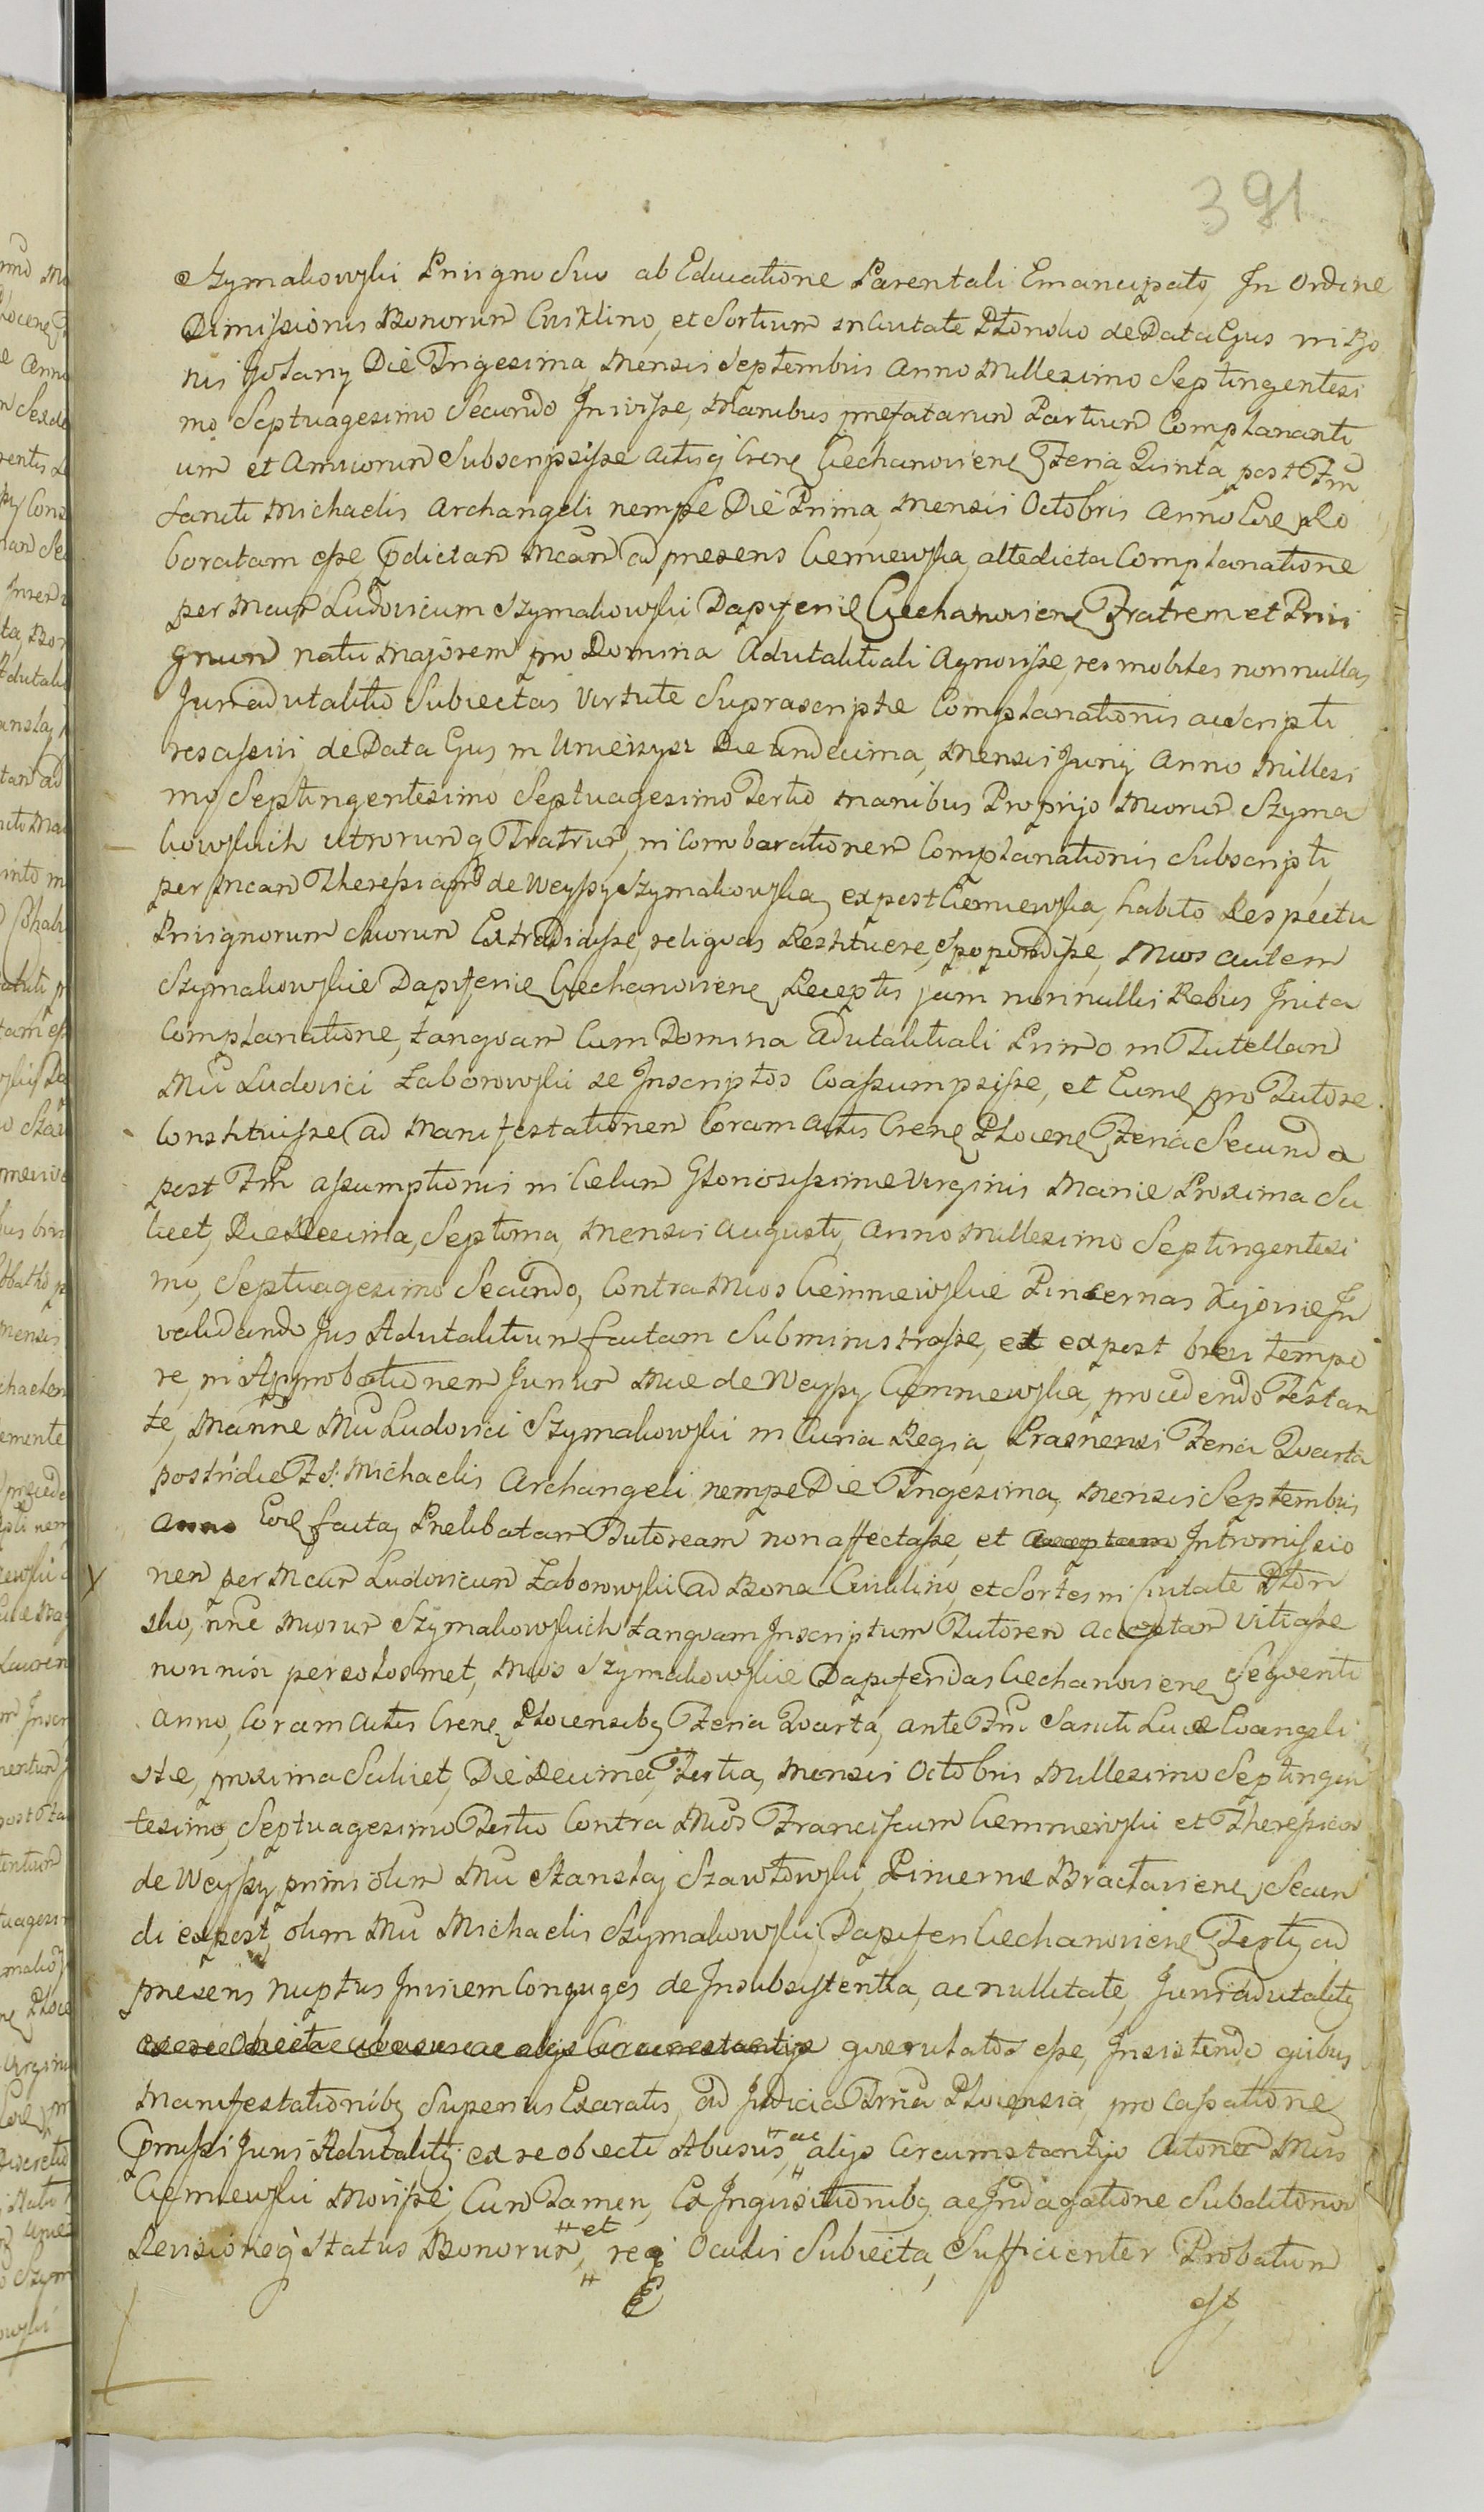 391
Szymakowski Privigno Suo ab Educatione Parentali Emancipato, In Ordine
Dimissionis Bonorum Civiklino, et Sortium in Civitate Płonsko de Data Ejus in Bo
nis Gołany Die Trigesima, Mensis Septembris Anno Millesimo Septingentesi
mo Septuagesimo Secundo Inivisse, Manibus præfatarum Partium Complananti
um et Amicorum Subscripsisse Actisq Crens Ciechanoviens Feria Quinta, post Ftm
Sancti Michaelis Archangeli nempe Die Prima, Mensis Octobris Anno Eod Ro
boratam esse, pdictam Mcam ad præsens Ciemiewska, altedicta Complanatione
per Mcum Ludovicum Szymakowski Dapiferid Ciechanoviens Fratrem et Privi
gnum natu Majorem pro Domina Advitalitiali Agnovisse, res mobiles nonnullas
Juri advitalitio Subiectas Virtute Suprascriptæ Complanationis ac Scripti
recassivi, de Data Ejus in Umieszysz Die Undecima, Mensis Junij Anno Millesi
mo Septingentesimo Septuagesimo Tertio Manibus Proprijs Mcorum Szyma
kowskich utrorumq Fratrum, in Corroborationem Complanationis Subscripti,
per Mcam Theressiam de Weyssy Szymakowska, expost Ciemiewska, habito Respectu
Privignorum Suorum Extradidisse, reliquas Restituere, Spopondisse, Mcos autem
Szymakowskie Dapiferid Ciechanoviens Receptis jam nonnullis Rebus Inita
Complanatione, tanquam Cum Domina Advitalitiali Primo in Tutellam
Mci Ludovici Zaborowski se Inscriptos Coassumpsisse, et Eum pro Tutore
Constituisse, ad Manifestationem Coram Actis Crens Płocens Feria Secunda
post Ftm Assumptionis in Cælum Gloriosissimæ Virginis Mariæ Proxima Sci
licet, Die Decima, Septima, Mensis Augusti, Anno Millesimo Septingentesi
mo, Septuagesimo Secundo, Contra Mcos Ciemniewskie Pincernas Kijoviæ In
validando Jus Advitalitium factam Subministrasse, et expost brevi tempo
re, in Approbationem Jurium Mcæ de Weyssy Ciemniewska, procedendo Testan
te, Manne Mci Ludovici Szymakowski in Curia Regia, Prasnensi Feria Quarta
postridie F S: Michaelis Archangeli nempe Die Trigesima, Mensis Septembris
Anno Eod facta, Prælibatam Tutoream non affectasse, et acceptam Intromissio
nem per Mcum Ludovicum Zaborowski ad Bona Civiklino, et Sortes in Civitate Płon
sko, nne Mcorum Szymakowskich tanquam Inscriptum Tutorem acceptam Vitiasse
non nisi per eos​osmet, Mcos Szymakowskie Dapiferidas Ciechanoviens Sequenti
Anno, Coram Actis Crens Płocensibq Feria Quarta, ante Ftm Sancti Lucæ Evangeli
stæ, proxima Scilicet, Die Decima, Tertia, Mensis Octobris Millesimo Septingen
tesimo, Septuagesimo Tertio Contra Mcos Franciscum Ciemniewski et Theressiam
de Weyssy primi olim Mci Stanslaj Szawłowski, Pincernæ Bracłaviens, Secun
di expost, olim Mci Michaelis Szymakowski, Dapiferi Ciechanoviens Tertij ad
præsens nuptus Invicem Conjuges de Insubsistentia, ac nullitate, Juris advitalitij
ex re Obiecti abusus ac alijs Circumstantijs querulatos esse, Insistendo quibus
Manifestationibq Superius Exaratis, ad Judicia Trria Płocensia, pro Cassatione
pmissi Juris Advitalitij ex re obiecti Abusus, ac alijs Circumstantijs Actoneæ Mcis
Ciemiewski Movisse, Cum Tamen, Ex Inquisitionibq ac Indagatione Subditorum
Revisioneq Status Bonorum, et req Oculis Subiecta, Sufficienter Probatum
est,